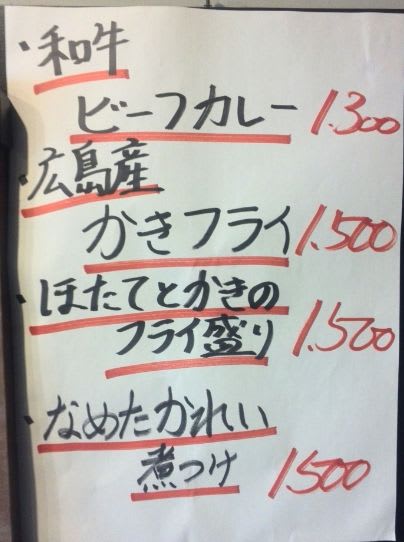 ・和牛
ビーフカレー 1.300
・広島産
かきフライ 1.500
・ほたてとかきの
フライ盛り 1.500
・なめたかれい
煮つけ 1500